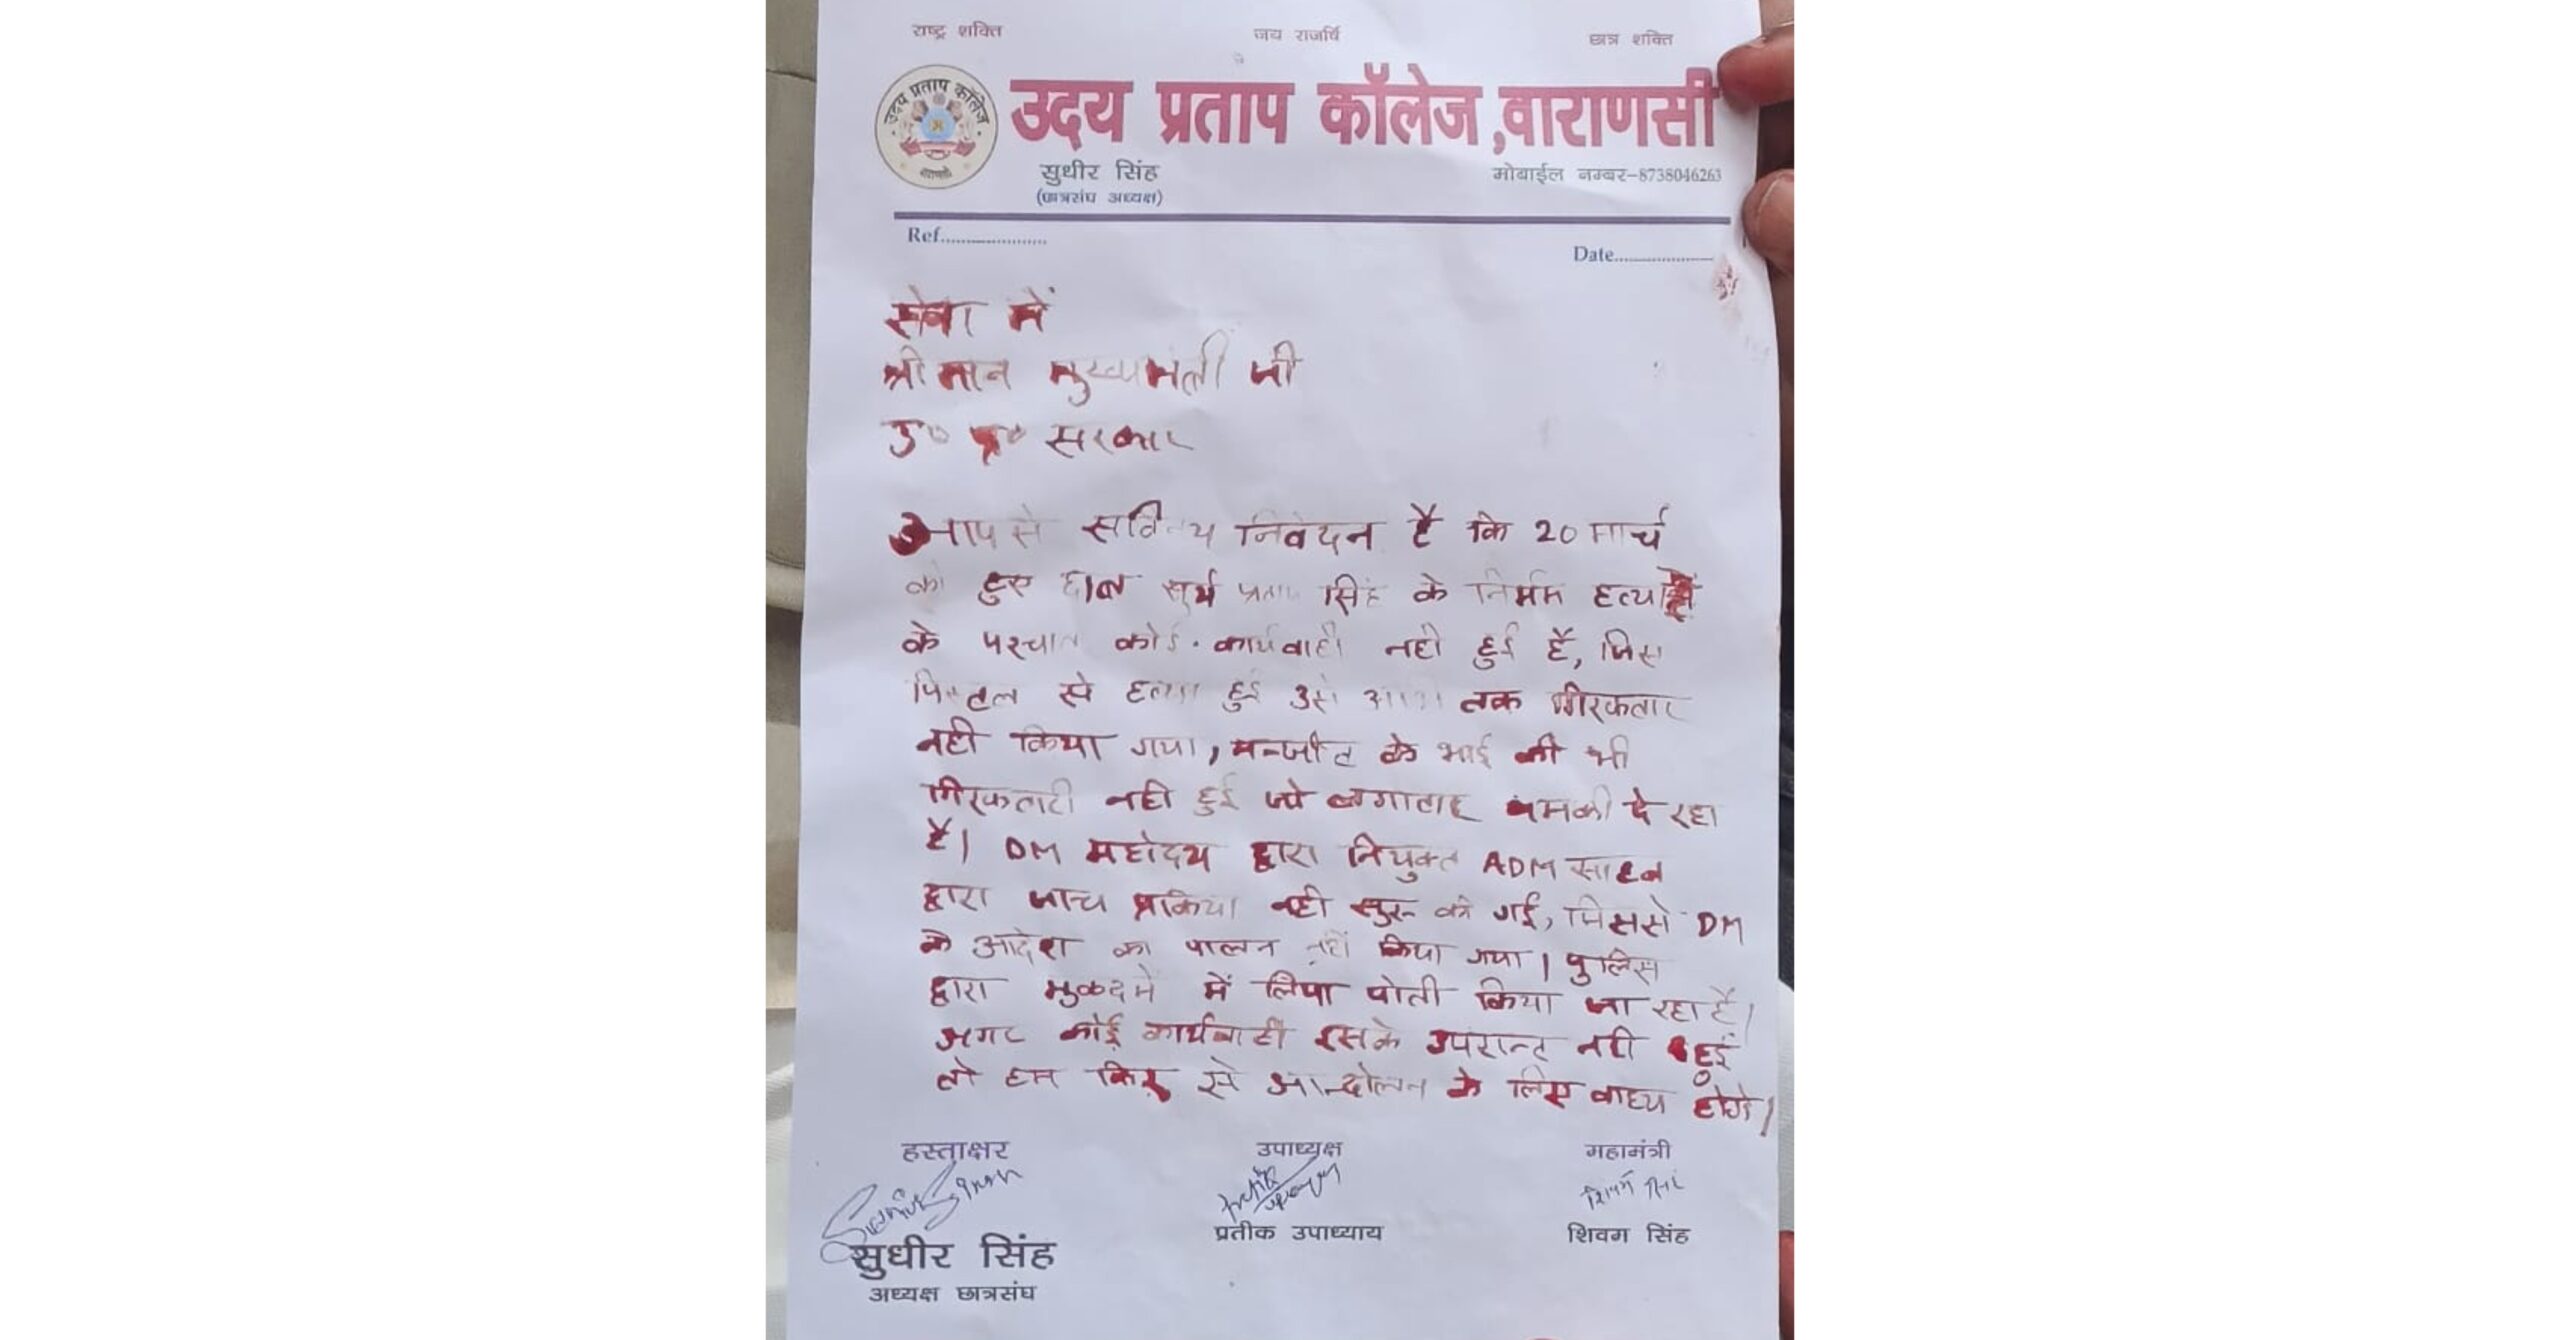 राष्ट्र शक्ति
जय राजर्षि
छात्र शक्ति
उदय प्रताप कॉलेज
वाराणसी
उदय प्रताप कॉलेज,वाराणसी
सुधीर सिंह
मोबाईल नम्बर-8738046263
(छात्रसंघ अध्यक्ष)
Ref.....................
Date....................
सेवा में
श्रीमान मुख्यमंत्री जी
उ० प्र० सरकार
आप से सविनय निवेदन है कि 20 मार्च
को हुए छात्र सूर्य प्रताप सिंह के निर्मम हत्या
के पश्चात कोई कार्यवाही नही हुई है, जिस
पिस्टल से हत्या हुई उसे आज तक गिरफतार
नही किया गया, मन्जीत के भाई की भी
गिरफतारी नही हुई जो लगातार धमकी दे रहा
है। DM महोदय द्वारा नियुक्त ADM साहब
द्वारा जांच प्रकिया नही सुरू की गई, जिससे DM
के आदेश का पालन नहीं किया गया। पुलिस
द्वारा मुकदमे में लिपा पोती किया जा रहा है।
अगर कोई कार्यवाही इसके उपरान्त नही हुई
तो हम फिर से आन्दोलन के लिए बाध्य होंगे।
हस्ताक्षर
उपाध्यक्ष
महामंत्री
सुधीर सिंह
प्रतीक उपाध्याय
शिवम सिंह
अध्यक्ष छात्रसंघ